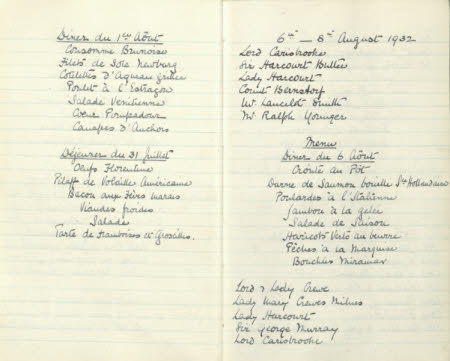 Dîner du 1er Août
Consommé Brunoise
Filets de Sole Newberg
Côtelettes d'Agneau grillées
Poulet à l'Estragon
Salade Venitienne
Coeur Pompadour
Canapes d'Anchois
Déjeuner du 31 Juillet
Oeufs Florentine
Pilaff de Volaille Américaine
Bacon aux Fèves marais
Viandes froides
Salade
Tarte de Framboises et Groseilles.
6th – 8th August 1932
Lord Carisbrooke
Sir Harcourt Butler
Lady Harcourt
Count Bernstorff
Mr Lancelot Smith
Mr Ralph Younger
Menu
Dîner du 6 Août
Croûte au Pot
Darne de Saumon bouillie Sce Hollandaise
Poulardes à l'Italienne
Jambon à la gelée
Salade de Saison
Haricots Verts au beurre
Pêches à la Marquise
Bouchées Miramar
Lord & Lady Crewe
Lady Mary Crewe Milnes
Lady Harcourt
Sir George Murray
Lord Carisbrooke